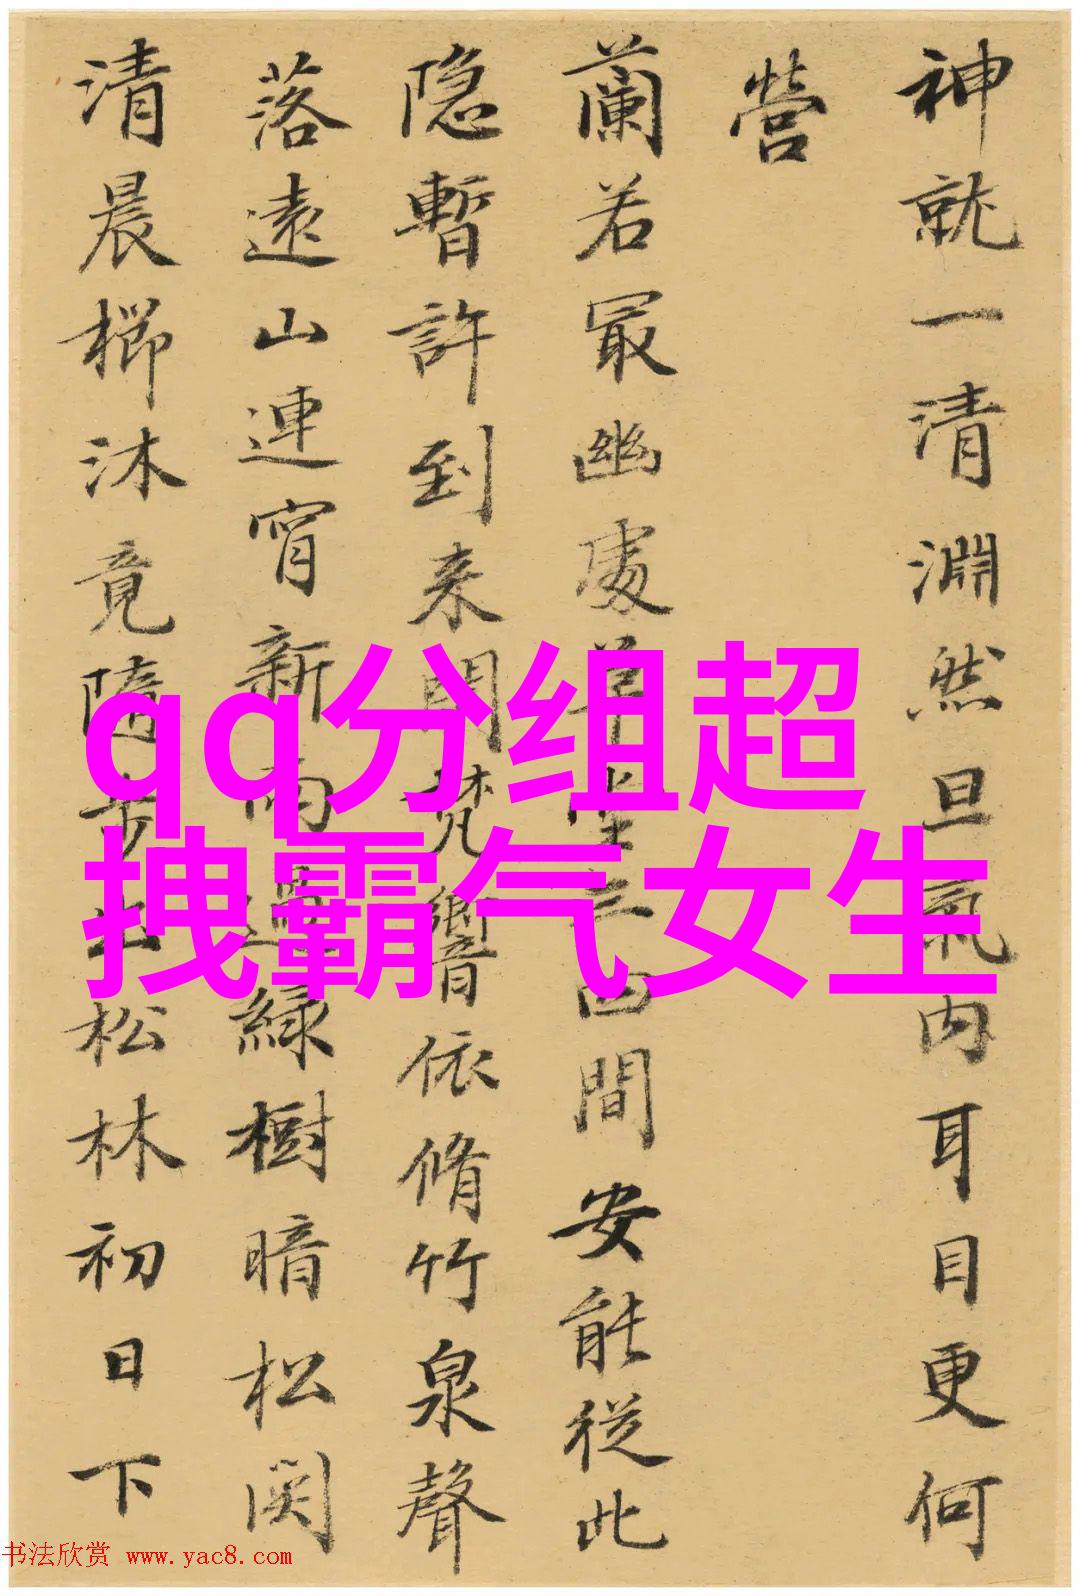 神就一清淵然旦氣内耳目更何
營
蘭若冣幽處草堂三四間安能從此
隐暫許到来門梵響依脩竹泉聲
落遠山連宵新雨過緑樹暗松関
清晨櫛沐竟隨步出松林初日下
qq分组超
拽霸气女生
书法欣赏 www.yac8.com